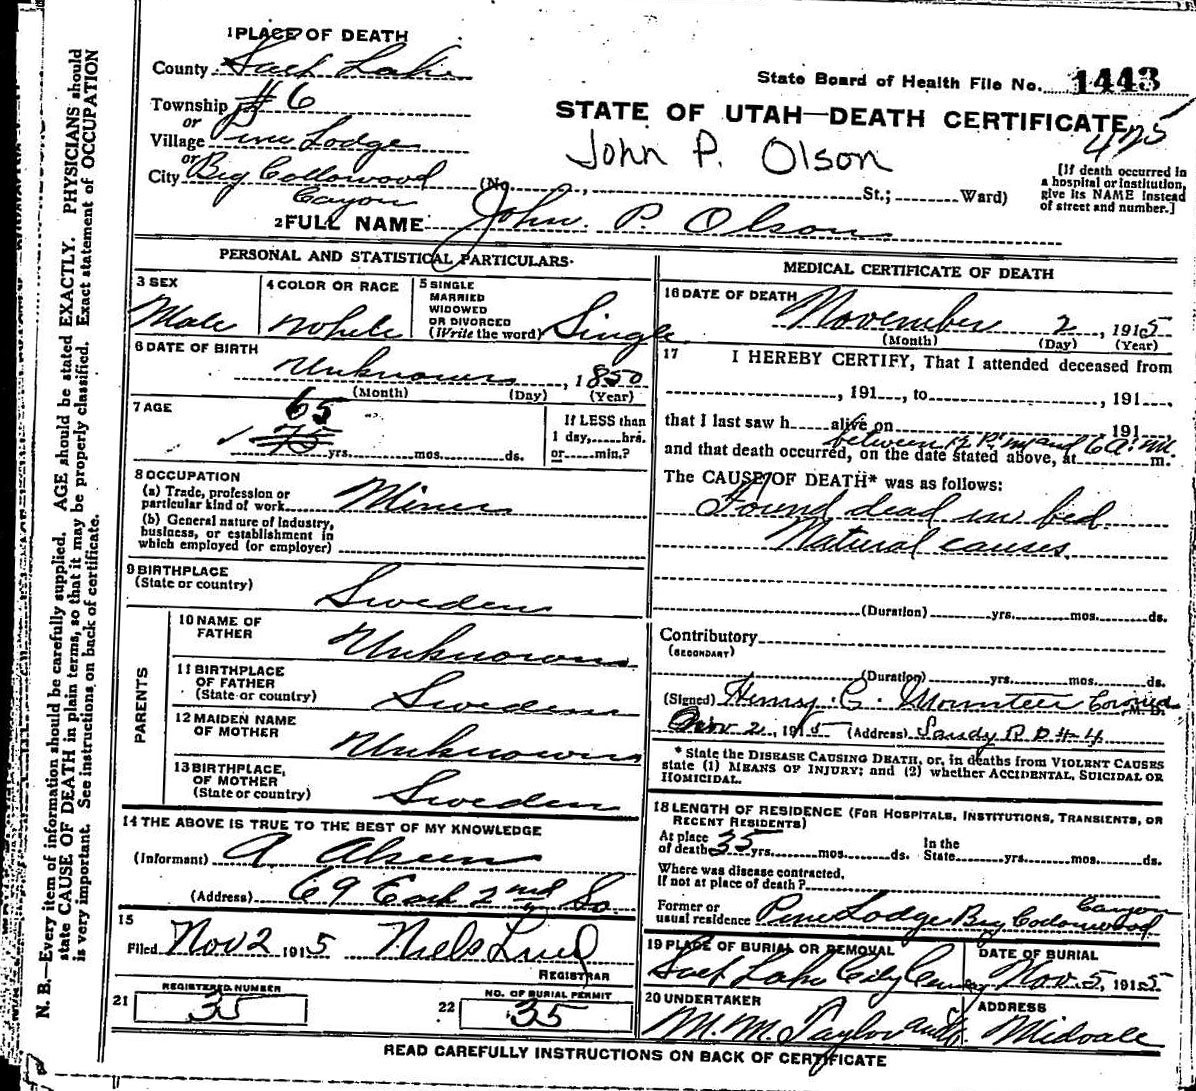 1 PLACE OF DEATH
County Salt Lake
State Board of Health File No. 1443
Township #6
or
STATE OF UTAH—DEATH CERTIFICATE
425
Village Pine Lodge
or
John P. Olson
City Big Cottonwood
Canyon
(No. St.; Ward)
[If death occurred in
a hospital or institution,
give its NAME instead
of street and number.]
2 FULL NAME John. P. Olson
PERSONAL AND STATISTICAL PARTICULARS
3 SEX
Male
4 COLOR OR RACE
White
5 SINGLE
MARRIED
WIDOWED
OR DIVORCED
(Write the word) Single
6 DATE OF BIRTH
Unknown, 1850
(Month) (Day) (Year)
7 AGE
65
75 yrs. mos. ds.
If LESS than
1 day, hrs.
or min.?
8 OCCUPATION
(a) Trade, profession or
particular kind of work Miner
(b) General nature of Industry,
business, or establishment in
which employed (or employer)
9 BIRTHPLACE
(State or country)
Sweden
PARENTS
10 NAME OF
FATHER
Unknown
11 BIRTHPLACE
OF FATHER
(State or country) Sweden
12 MAIDEN NAME
OF MOTHER
Unknown
13 BIRTHPLACE,
OF MOTHER
(State or country) Sweden
14 THE ABOVE IS TRUE TO THE BEST OF MY KNOWLEDGE
(Informant) A
(Address) 69 East 2nd So
15
Filed Nov 2 1915 Niels Lind
REGISTRAR
21 REGISTERED NUMBER
35
22 NO. OF BURIAL PERMIT
35
MEDICAL CERTIFICATE OF DEATH
16 DATE OF DEATH
November 2, 1915
(Month) (Day) (Year)
17 I HEREBY CERTIFY, That I attended deceased from
, 191 , to , 191 .
that I last saw h alive on 191
between 12 P.M. and 6 A.M.
and that death occurred, on the date stated above, at m.
The CAUSE OF DEATH* was as follows:
Found dead in bed
Natural causes
(Duration) yrs. mos. ds.
Contributory
(SECONDARY)
(Duration) yrs. mos. ds.
(Signed) Henry C. M. D.
Nov 2, 1915 (Address) Sandy R D #4
* State the DISEASE CAUSING DEATH, or, in deaths from VIOLENT CAUSES
state (1) MEANS OF INJURY; and (2) whether ACCIDENTAL, SUICIDAL OR
HOMICIDAL.
18 LENGTH OF RESIDENCE (FOR HOSPITALS, INSTITUTIONS, TRANSIENTS, OR
RECENT RESIDENTS)
At place
of death 35 yrs. mos. ds.
In the
State yrs. mos. ds.
Where was disease contracted,
if not at place of death?
Former or
usual residence Pine Lodge Big Cottonwood
Canyon
19 PLACE OF BURIAL OR REMOVAL
Salt Lake City
DATE OF BURIAL
Nov. 5, 1915
20 UNDERTAKER
M. M. Taylor
ADDRESS
Midvale
READ CAREFULLY INSTRUCTIONS ON BACK OF CERTIFICATE
N. B.—Every item of information should be carefully supplied. AGE should be stated EXACTLY. PHYSICIANS should
state CAUSE OF DEATH in plain terms, so that it may be properly classified. Exact statement of OCCUPATION
is very important. See instructions on back of certificate.